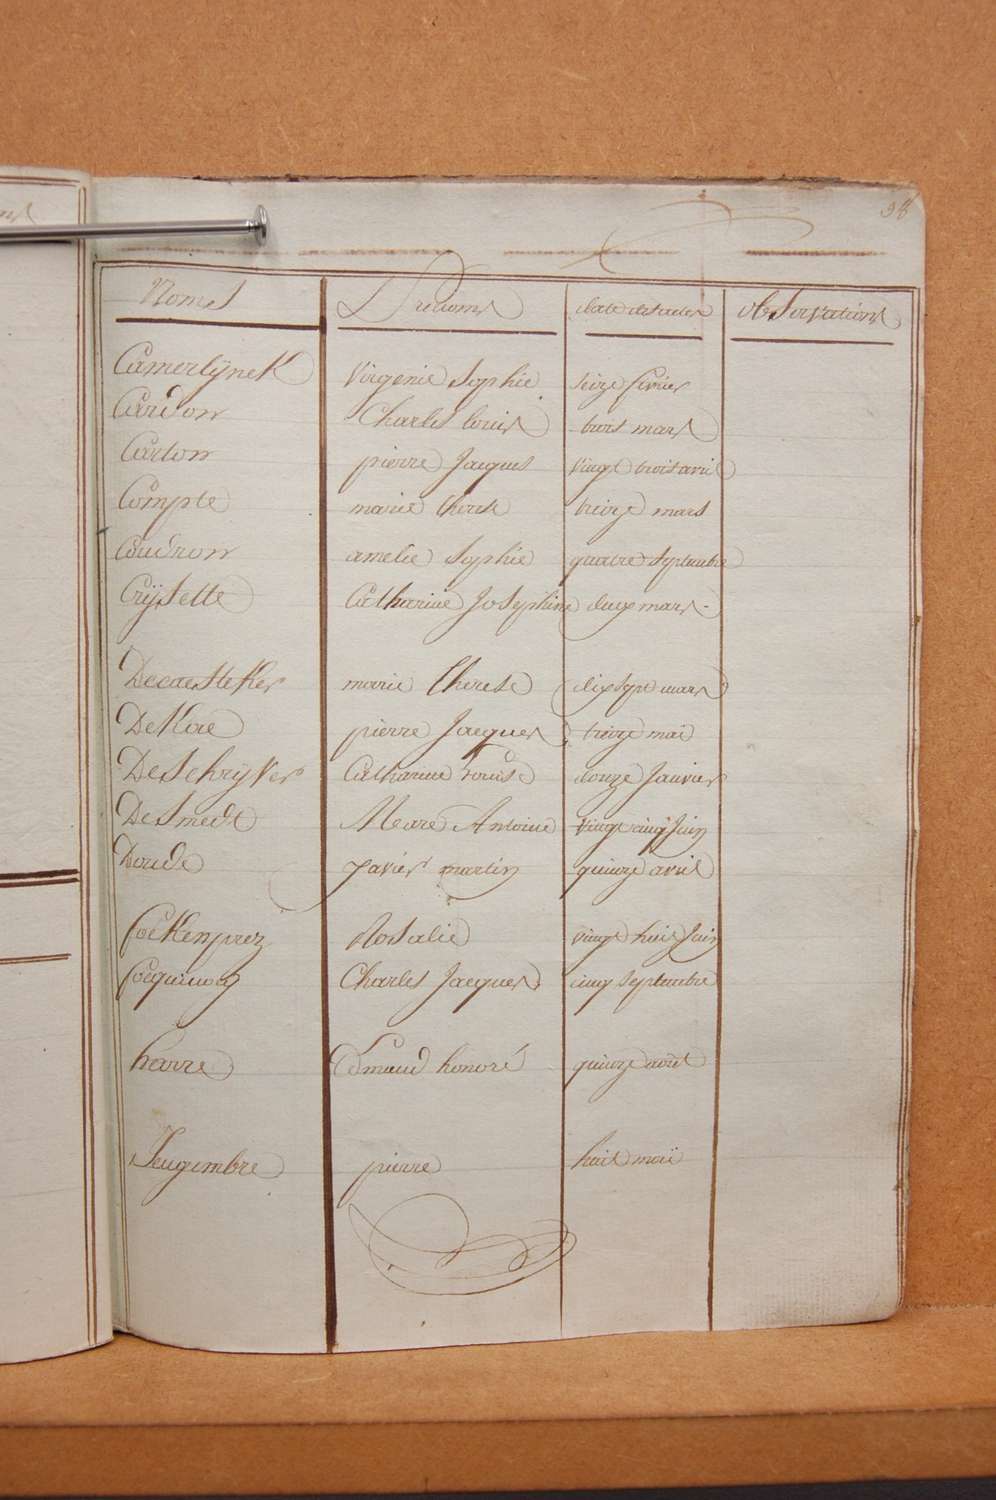 98
Noms Prenoms date des actes observations
Camerlÿnck virgenie Sophie seize fevrier
Cardon Charles louis trois mars
Carton pierre Jacques vingt trois avril
Compte marie therese treize mars
Coudron amelie Sophie quatre septembre
Crÿsette Catharine Josephine deux mars
Decaesteker marie therese dix sept mars
DeKae pierre Jacques treize maï
DeSchrÿver Catharine Louise douze Janvier
DeSmedt Marc Antoine vingt cinq Juin
Doude Xavier martin quinze avril
Goekenprez Rosalie vingt huit Juin
Charles Jacques cinq septembre
havre Edmond honoré quinze avril
Jeugembre pierre huit maï